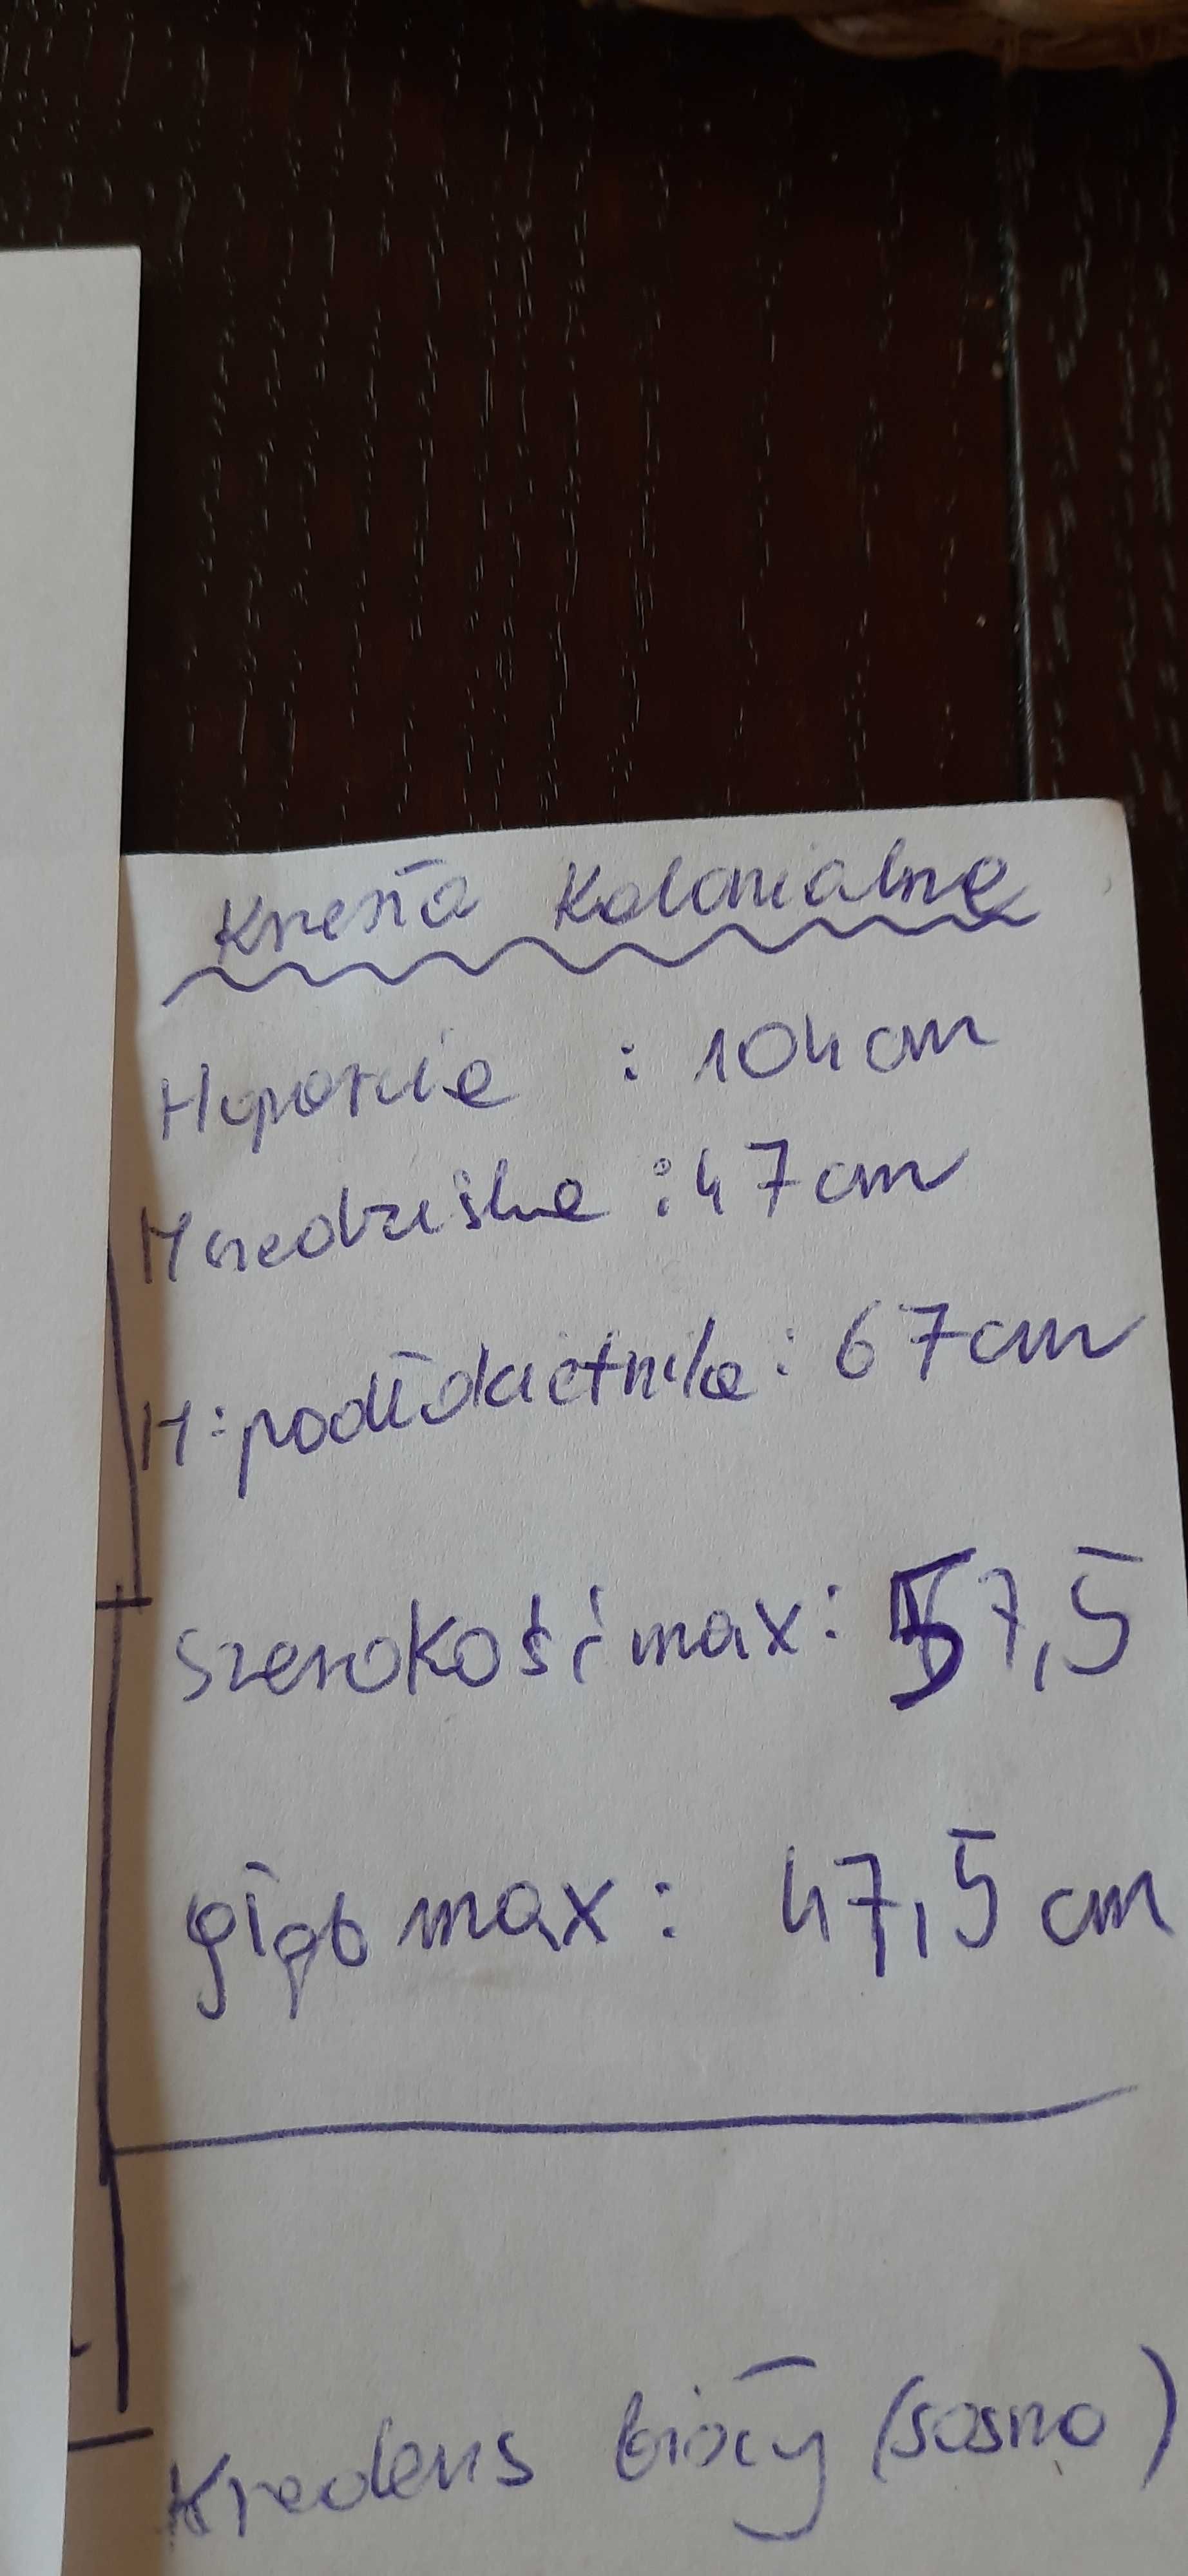 Krzesła Kolonialne
H oparcie : 104 cm
H siedziska : 47 cm
H : podłokietnika : 67 cm
Szerokość max : 57,5
głęb max : 47,5 cm
Kredens biały (sosna)